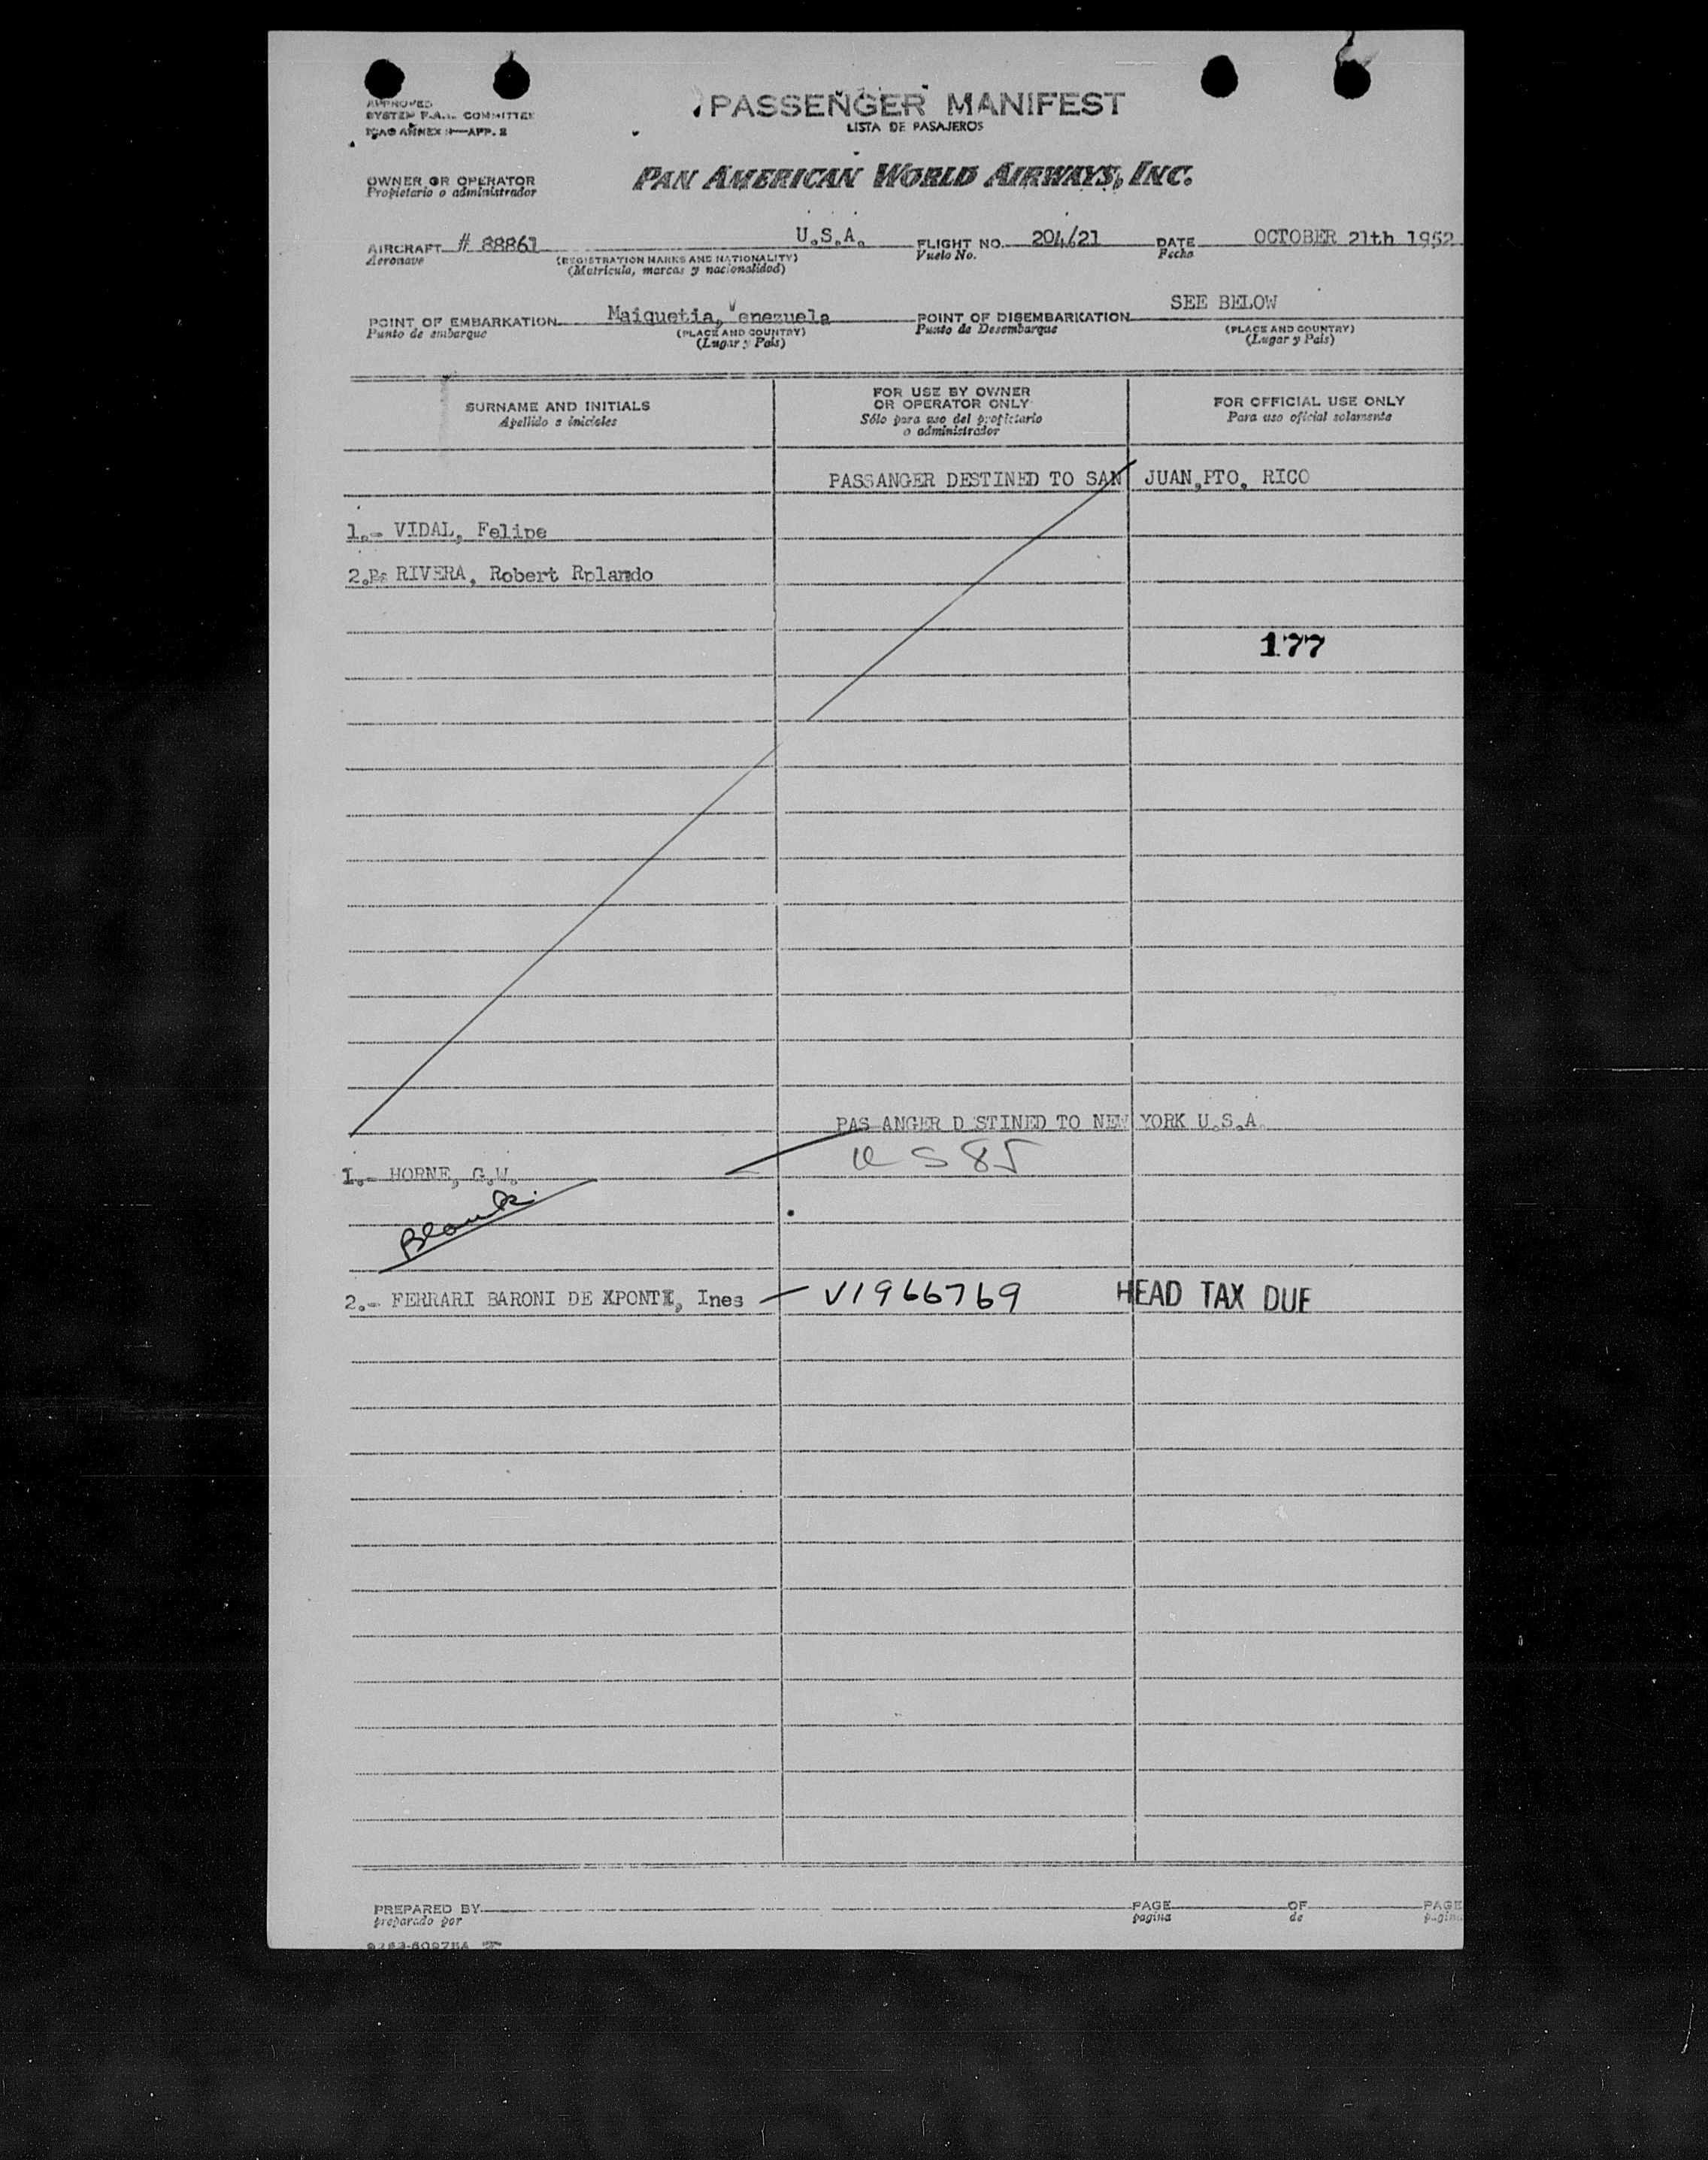 APPROVED
SYSTEM F.A.L. COMMITTEE
ICAO ANNEX 9—APP. 2
PASSENGER MANIFEST
LISTA DE PASAJEROS
OWNER OR OPERATOR
Propietario o administrador
PAN AMERICAN WORLD AIRWAYS, INC.
AIRCRAFT # 88861 U.S.A. FLIGHT NO. 204/21 DATE OCTOBER 21th 1952
Aeronave (REGISTRATION MARKS AND NATIONALITY) Vuelo No. Fecha
(Matricula, marcas y nacionalidad)
POINT OF EMBARKATION Maiquetia, Venezuela POINT OF DISEMBARKATION SEE BELOW
Punto de embarque (PLACE AND COUNTRY) Punto de Desembarque (PLACE AND COUNTRY)
(Lugar y Pais) (Lugar y Pais)
SURNAME AND INITIALS
Apellido e iniciales
FOR USE BY OWNER
OR OPERATOR ONLY
Sólo para uso del propietario
o administrador
FOR OFFICIAL USE ONLY
Para uso oficial solamente
PASSANGER DESTINED TO SAN JUAN,PTO. RICO
1.- VIDAL, Felipe
2. RIVERA, Robert Rplando
177
PAS ANGER D STINED TO NEW YORK U.S.A.
1.- HORNE, G.W. 585
Blank
2.- FERRARI BARONI DE XPONTE, Ines — V1966769 HEAD TAX DUE
PREPARED BY PAGE OF PAGE
preparado por pagina de pagina